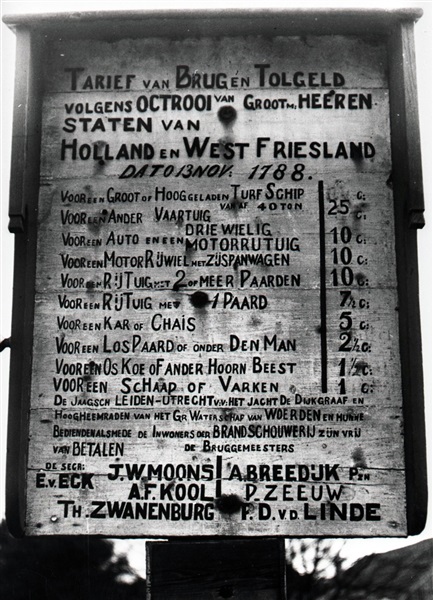 TARIEF VAN BRUG EN TOLGELD
VOLGENS OCTROOI VAN GROOTM. HEEREN
STATEN VAN
HOLLAND EN WEST FRIESLAND
DATO 13 NOV. 1788.
VOOR EEN GROOT OF HOOG GELADEN TURF SCHIP C:
VOOR EEN ANDER VAARTUIG VAN AF 40 TON 25 C:
VOOR EEN AUTO EN EEN DRIE WIELIG MOTORRIJTUIG 10 C:
VOOR EEN MOTOR RIJWIEL MET ZIJSPANWAGEN 10 C:
VOOR EEN RIJTUIG MET 2 OF MEER PAARDEN 10 C:
VOOR EEN RIJTUIG MET 1 PAARD 7½ C:
VOOR EEN KAR OF CHAIS 5 C:
VOOR EEN LOS PAARD OF ONDER DEN MAN 2½ C:
VOOR EEN OS KOE OF ANDER HOORN BEEST 1½ C:
VOOR EEN SCHAAP OF VARKEN 1 C:
DE JAAGSCH LEIDEN-UTRECHT V.V: HET JACHT DE DIJKGRAAF EN
HOOGHEEMRADEN VAN HET GR. WATERSCHAF VAN WOERDEN EN HUNNE
BEDIENDEN ALSMEDE DE INWONERS DER BRANDSCHOUWERIJ ZIJN VRIJ
VAN BETALEN DE BRUGGEMEESTERS
DE SECR: J.W. MOONS A. BREEDIJK PZN
E.V. ECK A.F. KOOL P. ZEEUW
TH. ZWANENBURG F.D.V.D. LINDE